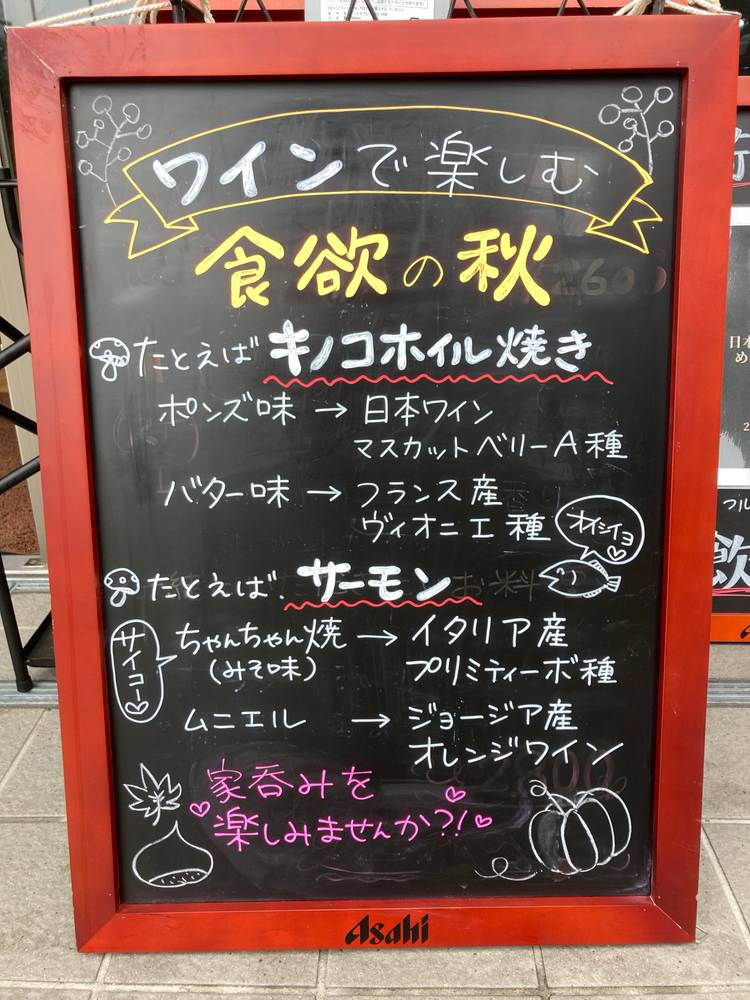 ワインで楽しむ
食欲の秋
たとえば キノコホイル焼き
ポンズ味 → 日本ワイン
マスカットベリーA種
バター味 → フランス産
ヴィオニエ種
オイシイヨ
たとえば、サーモン
サイコー
ちゃんちゃん焼 → イタリア産
(みそ味) プリミティーボ種
ムニエル → ジョージア産
オレンジワイン
家呑みを
楽しみませんか?!
Asahi